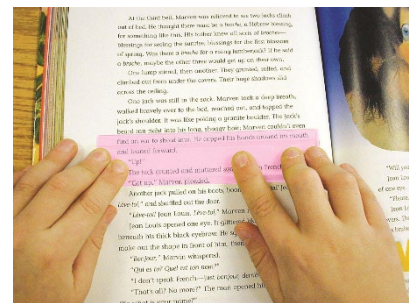 At the third bell, Marven was relieved to see two jacks climb
out of bed. He thought there must be a bracha, a Hebrew blessing,
for something like this. His father knew all sorts of brachas—
blessings for seeing the sunrise, blessings for the first blossom
of spring. Was there a bracha for a rising lumberjack? If he said
a bracha, maybe the other three would get up on their own.
One lump stirred, then another. They groaned, rolled, and
climbed out from under the covers. Their huge shadows slid
across the ceiling.
One jack was still in the sack. Marven took a deep breath,
walked bravely over to the bed, reached out, and tapped the
jack's shoulder. It was like poking a granite boulder. The jack's
beard ran right into his long, shaggy hair; Marven couldn't even
find an ear to shout into. He cupped his hands around his mouth
and leaned forward.
"Up!"
The jack grunted and muttered something in French.
"Get up," Marven pleaded.
Another jack pulled on his boots,
and shuffled out the door.
"Lève-toi! Jean Louis. Lève-toi." Marven
Jean Louis opened one eye. It glittered
beneath his thick black eyebrow. He
make out the shape in front of him,
"Bonjour," Marven whispered.
"Qui es tu? Quel est ton nom?"
"I don't speak French—just bonjour,
"That's all? No more?" The man opened his
is your name?"